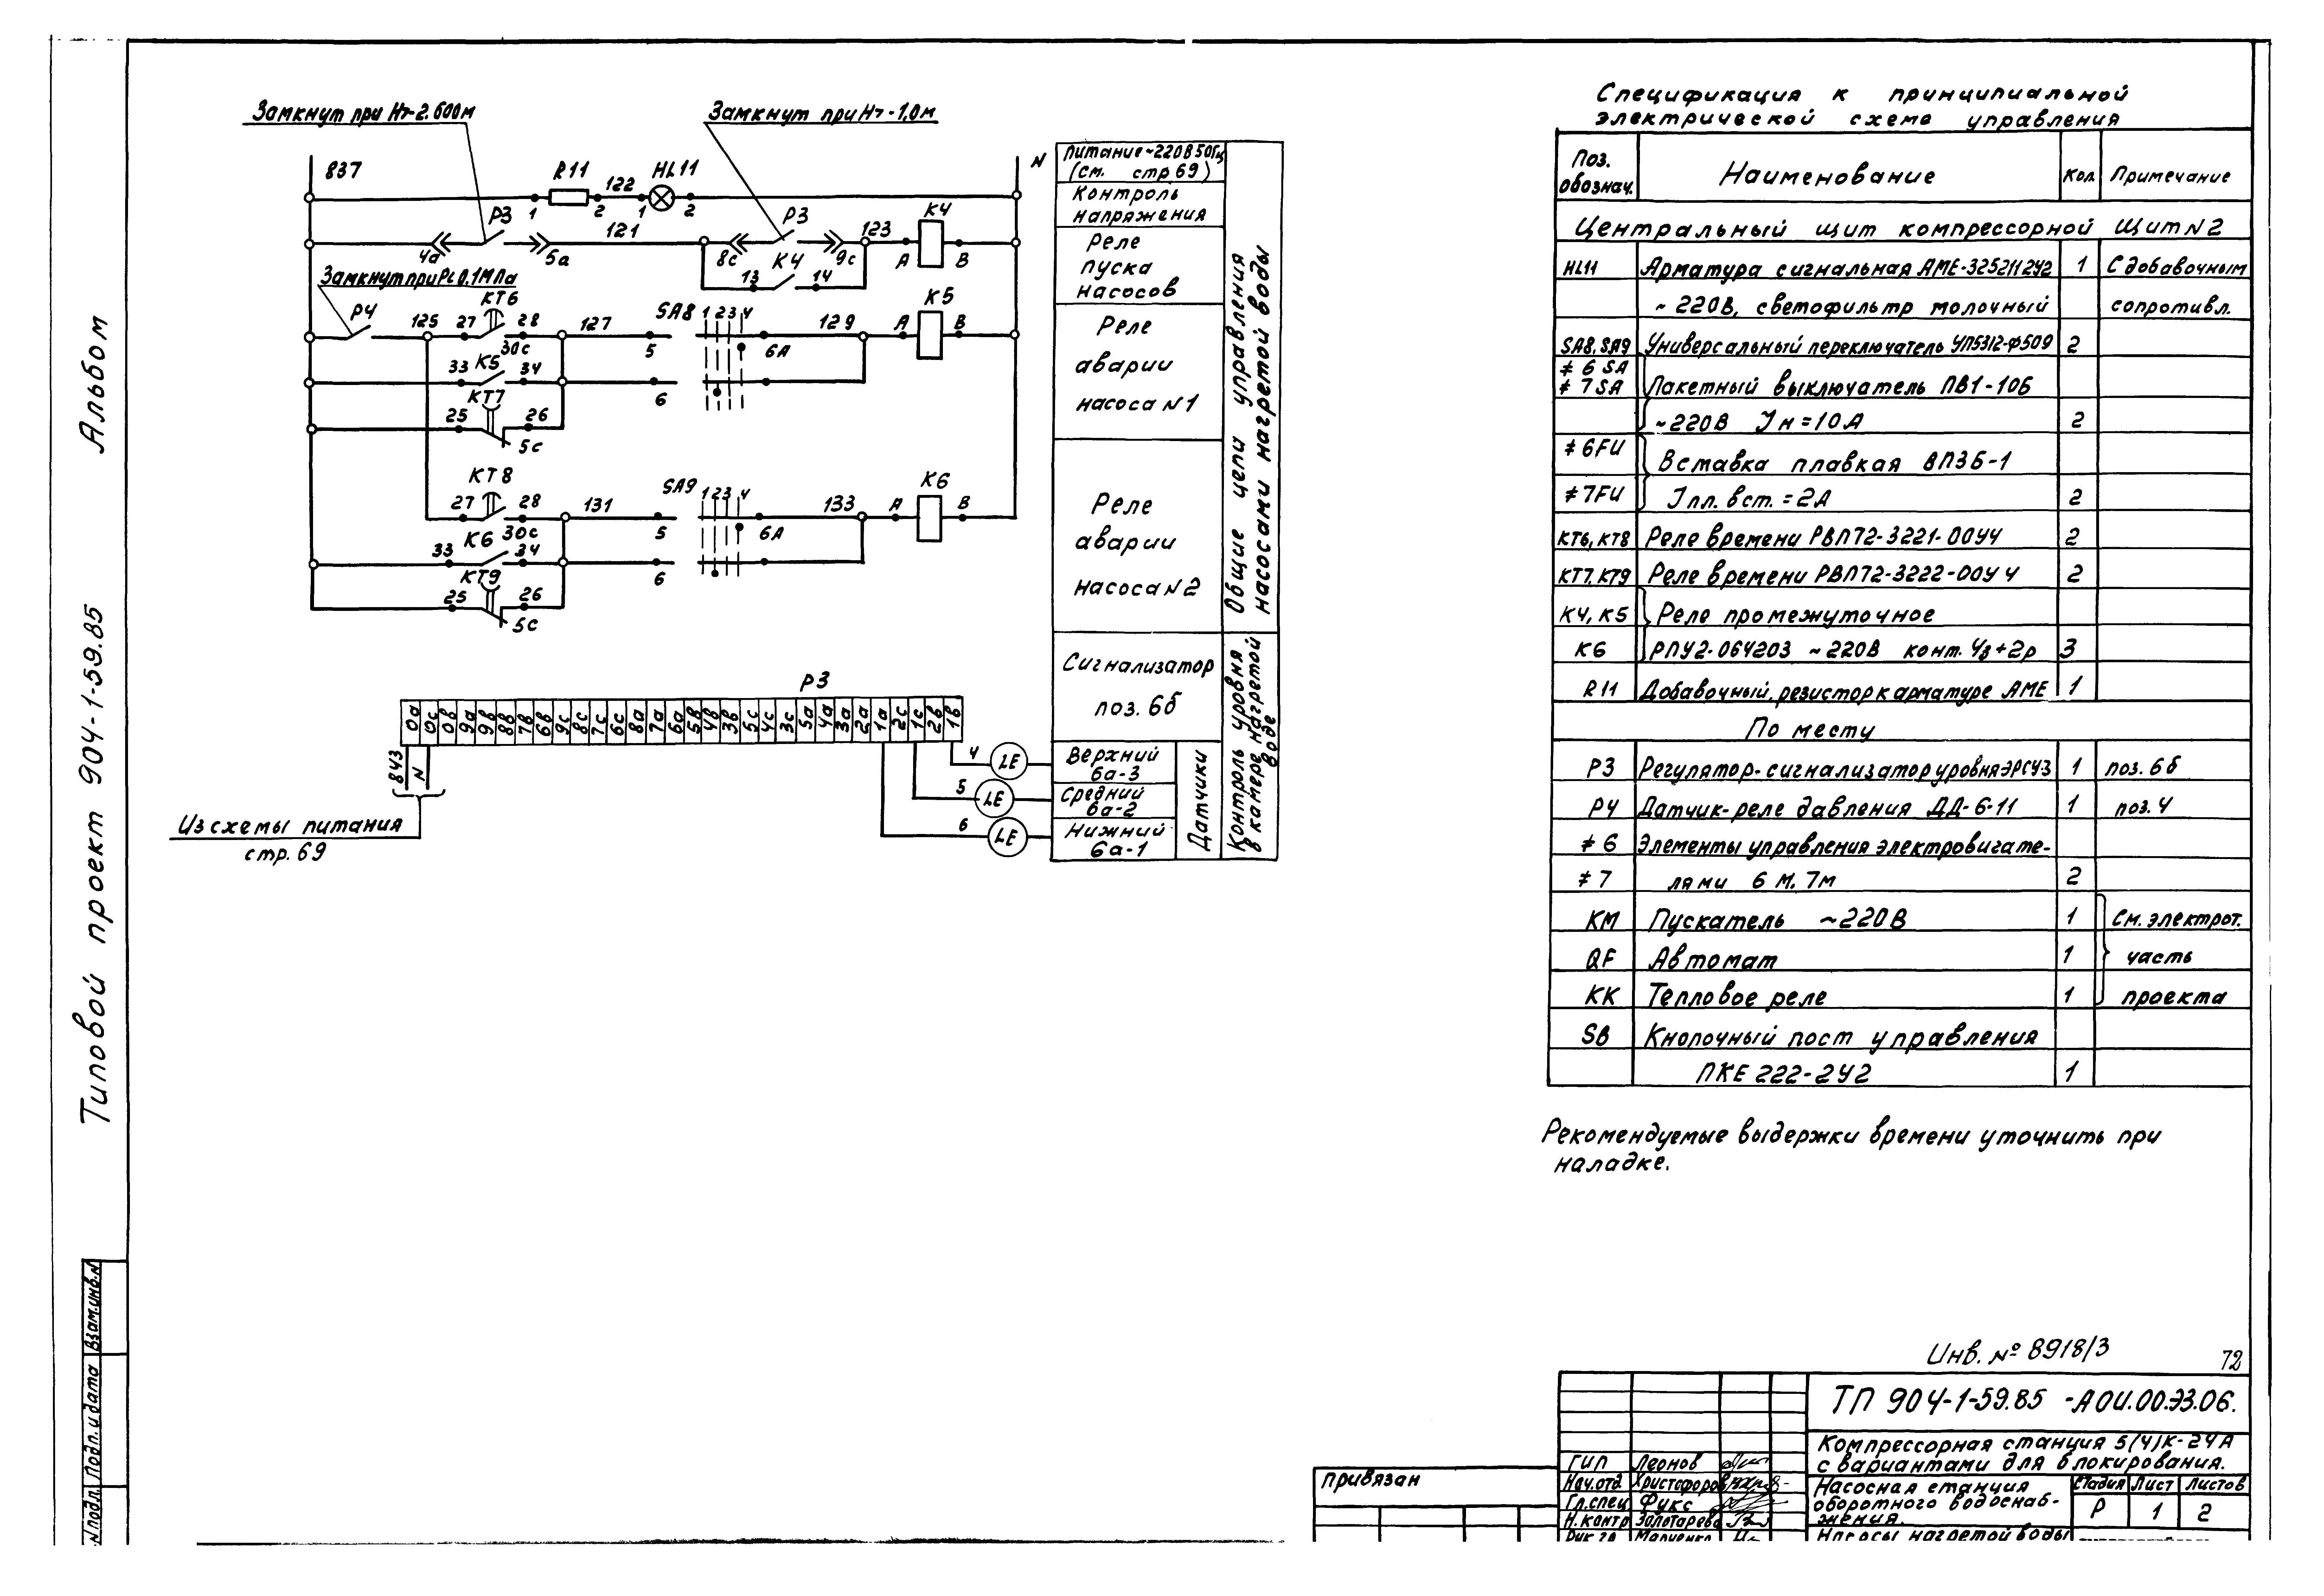 Альбом
Типовой проект 904-1-59.85
Взам.инв.N
Подп. и дата
N подл.
Замкнут при Н>-2.600м
Замкнут при Н>-1,0м
837
R11
122
HL11
N
1
2
1
2
P3
121
P3
123
K4
4а
5а
8с
9с
A
B
K4
13
14
Замкнут при Р<0,1МПа
P4
125
27
KT6
28
30с
127
SA8
1 2 3 4
129
K5
5
6А
A
B
33
K5
34
6
KT7
25
26
5с
KT8
27
28
30с
131
SA9
1 2 3 4
133
K6
5
6А
A
B
K6
33
34
6
KT9
25
26
5с
Питание ~220В 50Гц
(см. стр 69)
Контроль
напряжения
Реле
пуска
насосов
Реле
аварии
насоса N1
Реле
аварии
насоса N2
Общие цепи управления
насосами нагретой воды
Сигнализатор
поз. 6б
Контроль уровня
в камере нагретой
воде
Верхний
6а-3
Средний
6а-2
Нижний
6а-1
Датчики
P3
0а 0с 0в 9а 9в 8в 7в 6в 9с 8с 7с 6с 8а 7а 6а 5в 4в 3в 5с 4с 3с 5а 4а 3а 2а 1а 2с 1с 2в 1в
843
N
4
LE
5
LE
6
LE
Из схемы питания
стр. 69
Спецификация к принципиальной
электрической схеме управления
Поз. обознач. Наименование Кол. Примечание
Центральный щит компрессорной Щит N2
HL11 Арматура сигнальная АМЕ-325211242 1 С добавочным
~ 220В, светофильтр молочный сопротивл.
SA8, SA9 Универсальный переключатель УП5312-Ф509 2
≠ 6 SA
≠ 7 SA Пакетный выключатель ПВ1-10Б
~220В Iн=10А 2
≠ 6FU Вставка плавкая ВП3Б-1
≠ 7FU Iпл. вст. = 2А 2
KT6, KT8 Реле времени РВП72-3221-00У4 2
KT7, KT9 Реле времени РВП72-3222-00У4 2
K4, K5 Реле промежуточное
K6 РПУ2-064203 ~220В конт. 4з+2р 3
R11 Добавочный резистор к арматуре АМЕ 1
По месту
P3 Регулятор-сигнализатор уровня ЭРСУ-3 1 поз. 6б
P4 Датчик-реле давления ДД-6-11 1 поз. 4
≠ 6 Элементы управления электровигате-
≠ 7 лями 6 М. 7м 2
KM Пускатель ~220В 1 См. электрот.
QF Автомат 1 часть
KK Тепловое реле 1 проекта
SB Кнопочный пост управления
ПКЕ 222-2У2 1
Рекомендуемые выдержки времени уточнить при
наладке.
Инв. № 8918/3
72
ТП 904-1-59.85 -АОИ.00.ЭЗ.06.
Компрессорная станция 5(4)К-24А
с вариантами для блокирования.
Насосная станция
оборотного водоснаб-
жения.
Насосы нагретой воды
Стадия Лист Листов
Р 1 2
Привязан
ГИП Леонов
Нач.отд Христофоров
Гл.спец Фукс
Н.контр Золотарева
Рук гр